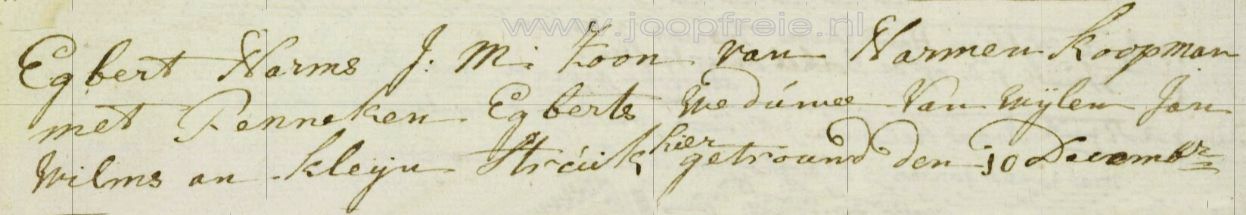 www.joopfreie.nl
Egbert Harms J: M: Zoon van Harmen Koopman
met Fenneken Egberts Weduwee van wijlen Jan
Wilms an kleijn Strúúk hier getrouwd den 10 Decembr